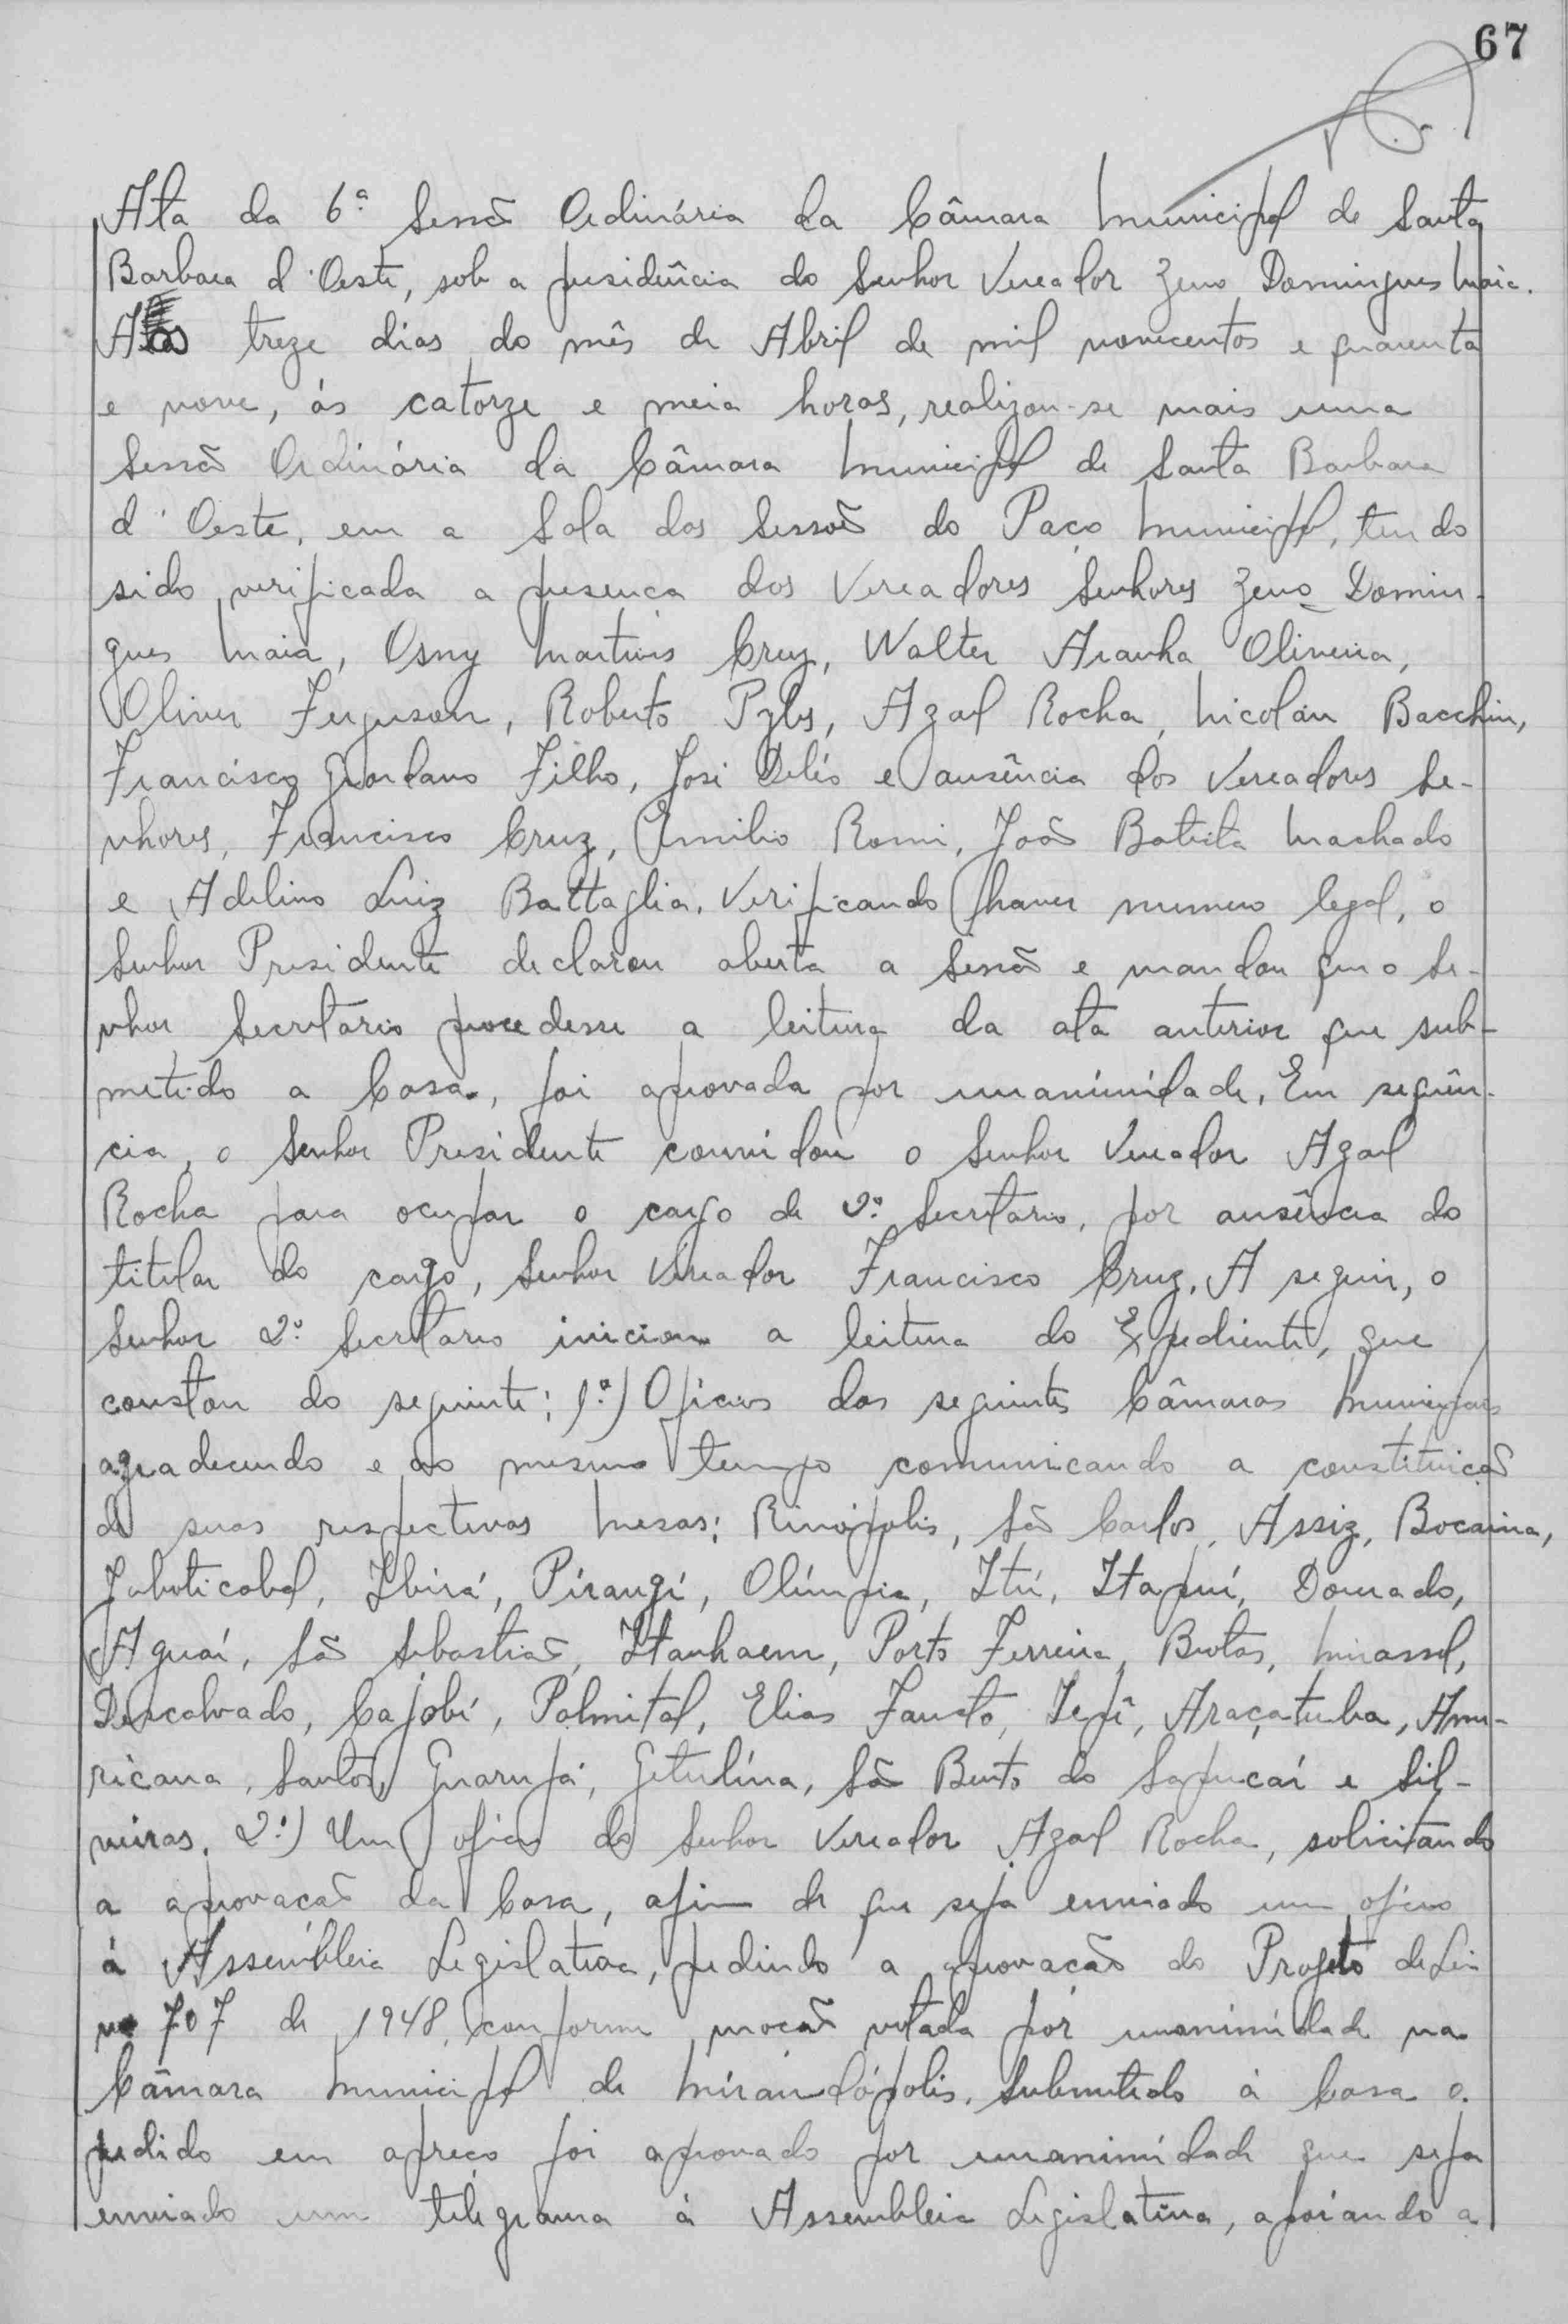 67
Ata da 6ª Sessão Ordinária da Câmara Municipal de Santa
Barbara d'Oeste, sob a presidência do Senhor Vereador Zeno Domingues Maia.
Aos treze dias do mês de Abril de mil novecentos e quarenta
e nove, ás catorze e meia horas, realizou-se mais uma
Sessão Ordinária da Câmara Municipal de Santa Barbara
d'Oeste, em a Sala das Sessões do Paço Municipal, tendo
sido verificada a presença dos Vereadores Senhores Zeno Domin-
gues Maia, Osny Martins Cruz, Walter Aranha Oliveira,
Oliver Ferguson, Roberto Pyles, Azael Rocha, Nicolau Bacchin,
Francisco Giordano Filho, José Deléo e ausência dos Vereadores Se-
nhores, Francisco Cruz, Emilio Romi, João Batista Machado
e Adelino Luiz Battaglia. Verificando haver numero legal, o
Senhor Presidente declarou aberta a Sessão e mandou que o Se-
nhor Secretario procedesse a leitura da ata anterior que sub-
metido a Casa, foi aprovada por unanimidade. Em seguên-
cia, o Senhor Presidente convidou o Senhor Vereador Azael
Rocha para ocupar o cargo de 2º Secretario, por ausência do
titular do cargo, Senhor Vereador Francisco Cruz. A seguir, o
Senhor 2º Secretario iniciou a leitura do Expediente, que
constou do seguinte: 1º) Oficios das seguintes Câmaras Municipais
agradecendo e ao mesmo tempo comunicando a constituição
de suas respectivas Mesas: Rinópolis, São Carlos, Assiz, Bocaina,
Jaboticabal, Ibirá, Pirangí, Olímpia, Itú, Itapuí, Dourado,
Aguaí, São Sebastião, Itanhaem, Porto Ferreira, Brotas, Mirassol,
Descalvado, Cajobí, Palmital, Elias Fausto, Iepê, Araçatuba, Ame-
ricana, Santos, Guarujá, Getulína, São Bento do Sapucaí e Sil-
veiras. 2º) Um oficio do Senhor Vereador Azael Rocha, solicitando
a aprovação da Casa, afim de que seja enviado um oficio
á Assembleia Legislativa, pedindo a aprovação do Projeto de Lei
nº 707 de 1948, conforme moção votada por unanimidade na
Câmara Municipal de Mirandópolis. Submetido á Casa o
pedido em apreço foi aprovado por unanimidade que seja
enviado um telegrama á Assembleia Legislativa, apoiando a